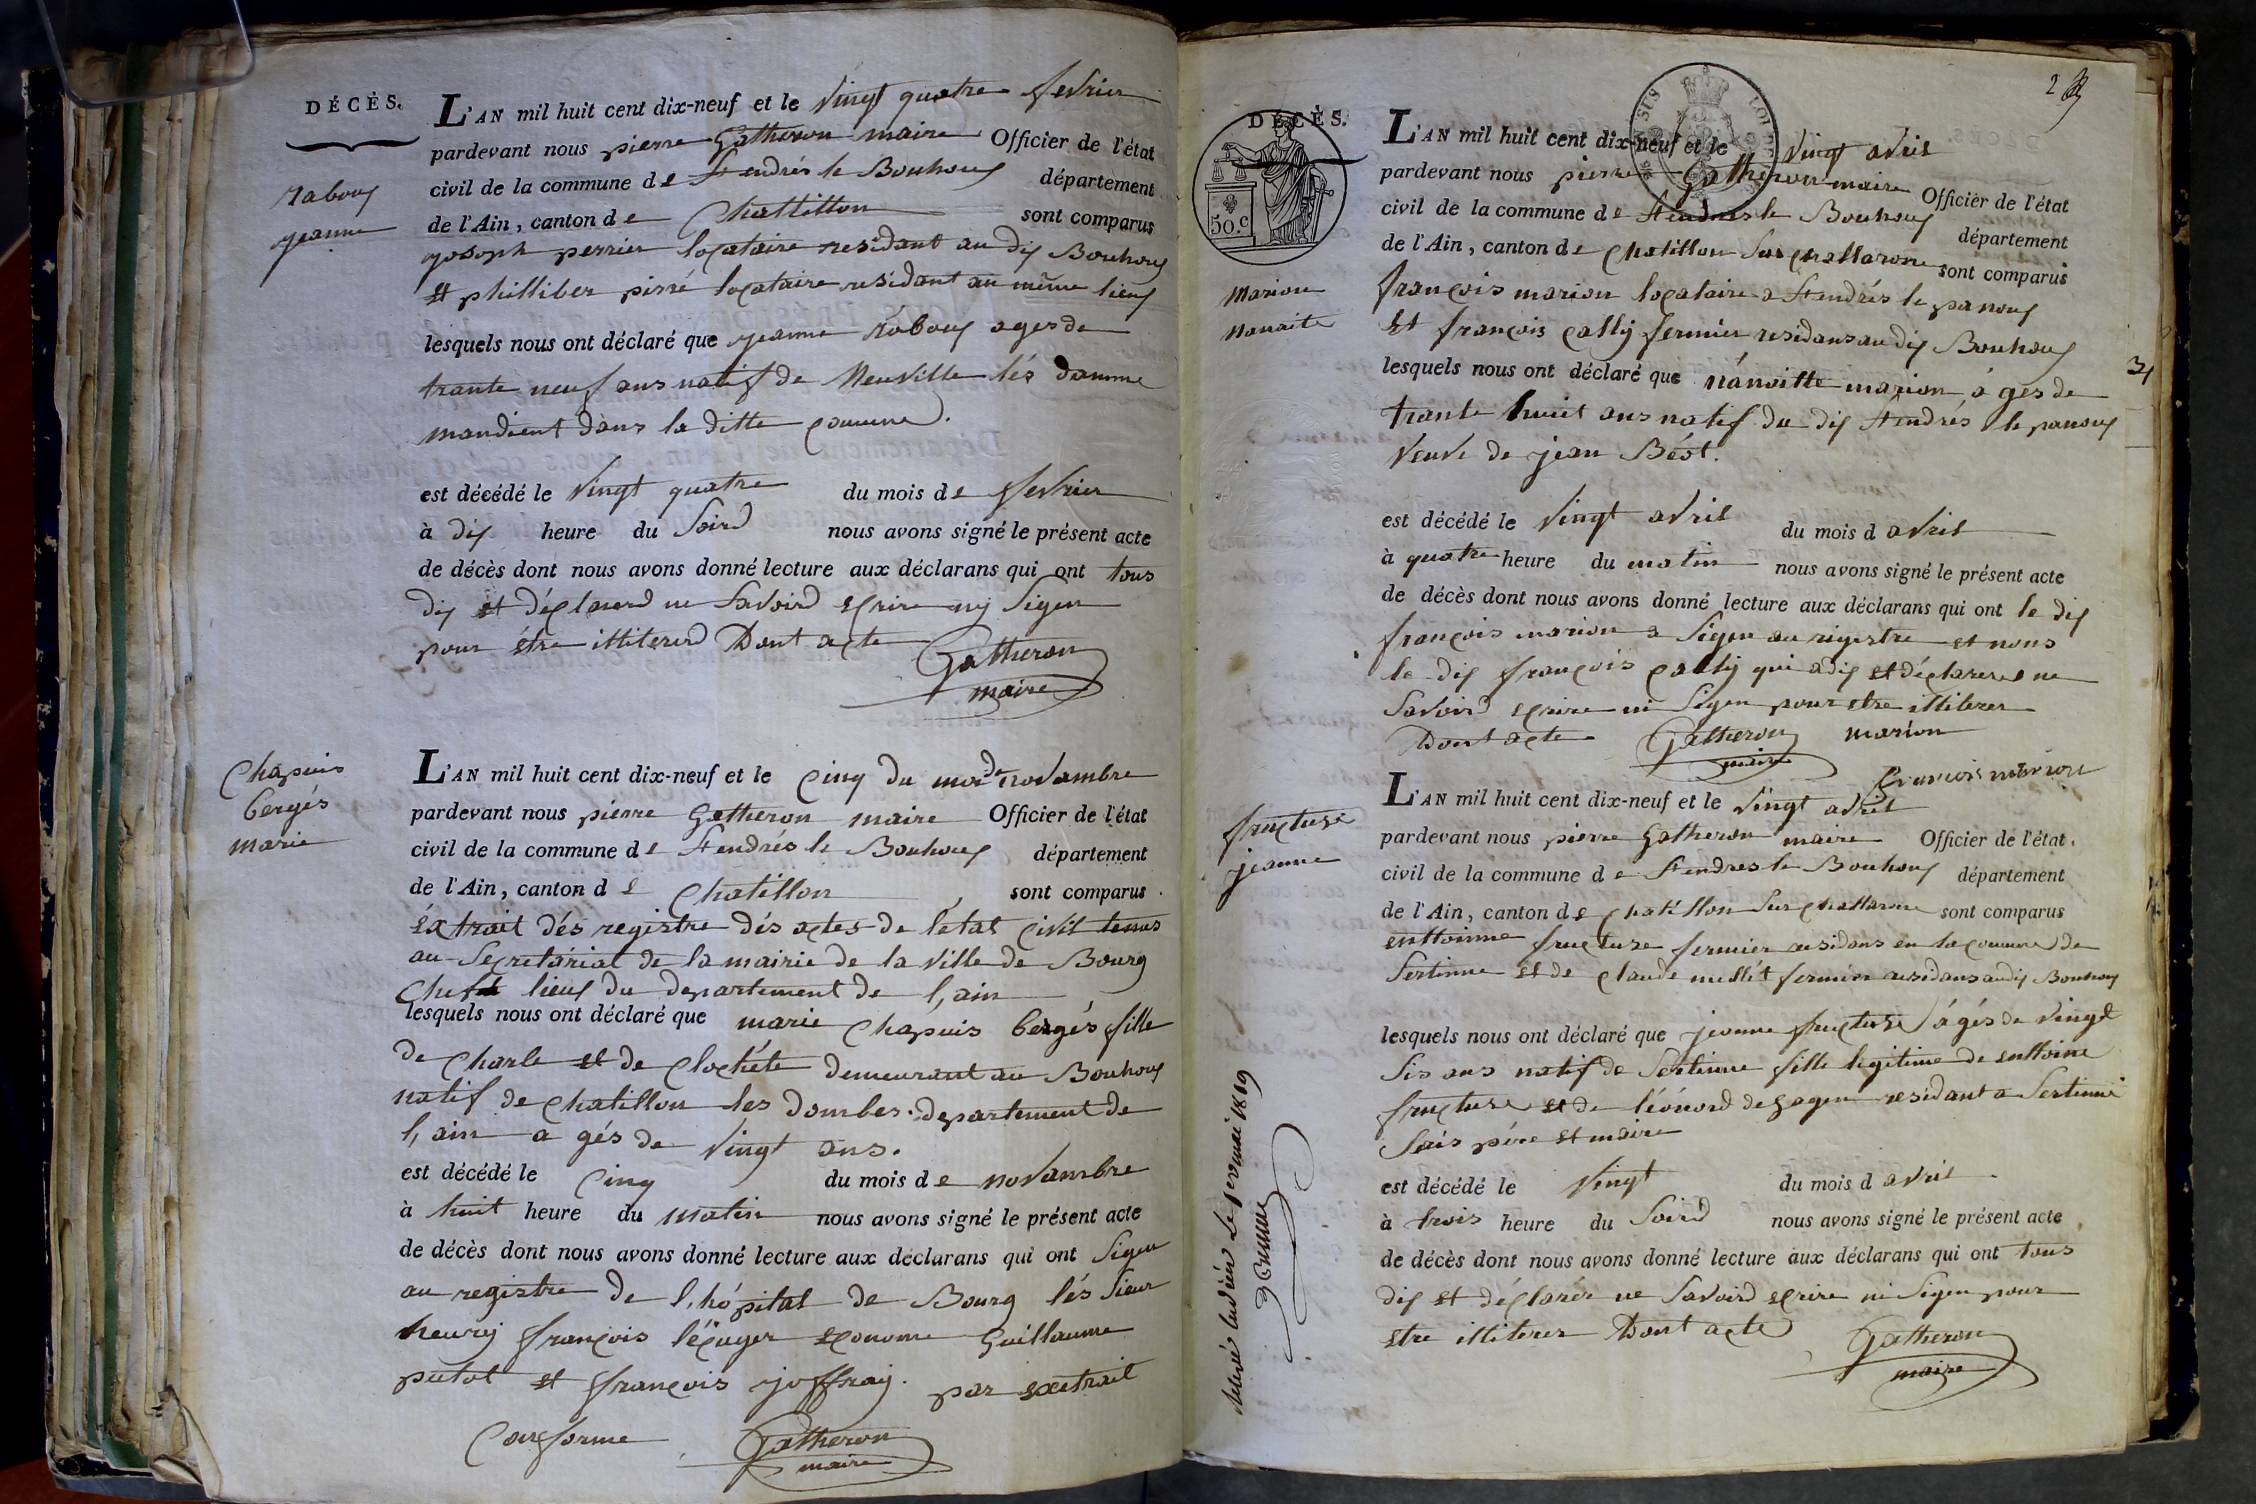 DÉCÈS.
rabouy
jeanne
L'AN mil huit cent dix-neuf et le vingt quatre fevrier
pardevant nous pierre Gatheron maire Officier de l'état
civil de la commune de st andrés le Bouhouy département
de l'Ain, canton de Chatillon sont comparus
joseph perrier locataire residant au dis Bouhouy
et philliber pirré locataire residant au même lieuy
lesquels nous ont déclaré que jeanne rabouy ages de
trante neuf ans natif de Neuville lés damme
mandient dans la ditte comune.
est décédé le vingt quatre du mois de fevrier
à dis heure du soird nous avons signé le présent acte
de décès dont nous avons donné lecture aux déclarans qui ont tous
dis et déclarerd ne savoird ecrire ny signer
pour être illitererd Dont acte Gatheron
maire
Chapuis
bergés
marie
L'AN mil huit cent dix-neuf et le cinq du mois de novambre
pardevant nous pierre Gatheron maire Officier de l'état
civil de la commune de st andrés le Bouhouy département
de l'Ain, canton de Chatillon sont comparus
éxtrait dés registre dés actes de l'état civil tenus
au Secretariat de la mairie de la ville de Bourg
chef lieuy du departement de l,ain
lesquels nous ont déclaré que marie Chapuis bergés fille
de Charle et de Clochéte demeurant au Bouhouy
natif de Chatillon les dombes departement de
l,ain a gés de vingt ans.
est décédé le cinq du mois de novambre
à huit heure du matin nous avons signé le présent acte
de décès dont nous avons donné lecture aux déclarans qui ont signer
au registre de l,hópital de Bourg lés sieur
henry françois lécuyer econome Guillaume
putot et françois joffray. par extrait
Conforme Gatheron
maire
2
DÉCÈS.
50.c
marion
nanaite
L'AN mil huit cent dix-neuf et le vingt avril
pardevant nous pierre Gatheron maire Officier de l'état
civil de la commune de st andres le Bouhouy département
de l'Ain, canton de Chatillon sur Challarone sont comparus
françois marion locataire a st andrés le panouy
et françois cally fermier residans au dis Bouhouy
lesquels nous ont déclaré que nánoitte marion á ges de
trante huit ans natif du dis st andrés le panouy
veuve de jean Béot.
est décédé le vingt avril du mois d avril
à quatre heure du matin nous avons signé le présent acte
de décès dont nous avons donné lecture aux déclarans qui ont le dis
françois marion a signer au rigistre et nous
le dis françois cally qui a dis et déclarere ne
savoird ecrire ni signer pour etre illiterer
Dont acte Gatheron marion
maire
françois marion
fructuse
jeanne
L'AN mil huit cent dix-neuf et le vingt avril
pardevant nous pierre Gatheron maire Officier de l'état
civil de la commune de st andres le Bouhouy département
de l'Ain, canton de Chatillon sur Challarone sont comparus
enttoinne fructuse fermier residans en la comune de
Sertinne et de claude meillét fermier residans au dis Bouhouy
lesquels nous ont déclaré que jeanne fructuse á gés de vingt
sis ans natif de Sertinne fille legitime de enttoine
fructuse et de léonord degagen residant a Sertinne
sais pére et maire
est décédé le vingt du mois d avril
à trois heure du soird nous avons signé le présent acte
de décès dont nous avons donné lecture aux déclarans qui ont tous
dis et déclarér ne savoird ecrire ni signer pour
etre illiterer Dont acte Gatheron
maire